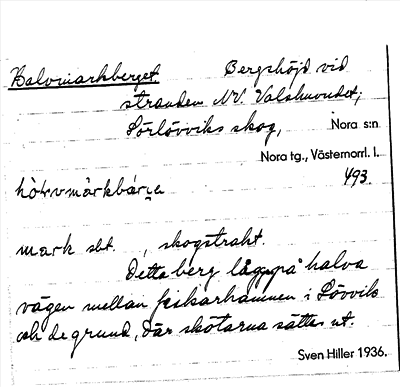 Halvmarkberget. Bergshöjd vid
stranden NV. Valshuvudet,
Sörlövviks skog, Nora s:n
Nora tg., Västernorrl. l.
493.
mark sbt. , skogstrakt.
Detta berg låg på halva
vägen mellan fiskarhamnen i Lövvik
och de grund, där skötarna sättes ut.
Sven Hiller 1936.